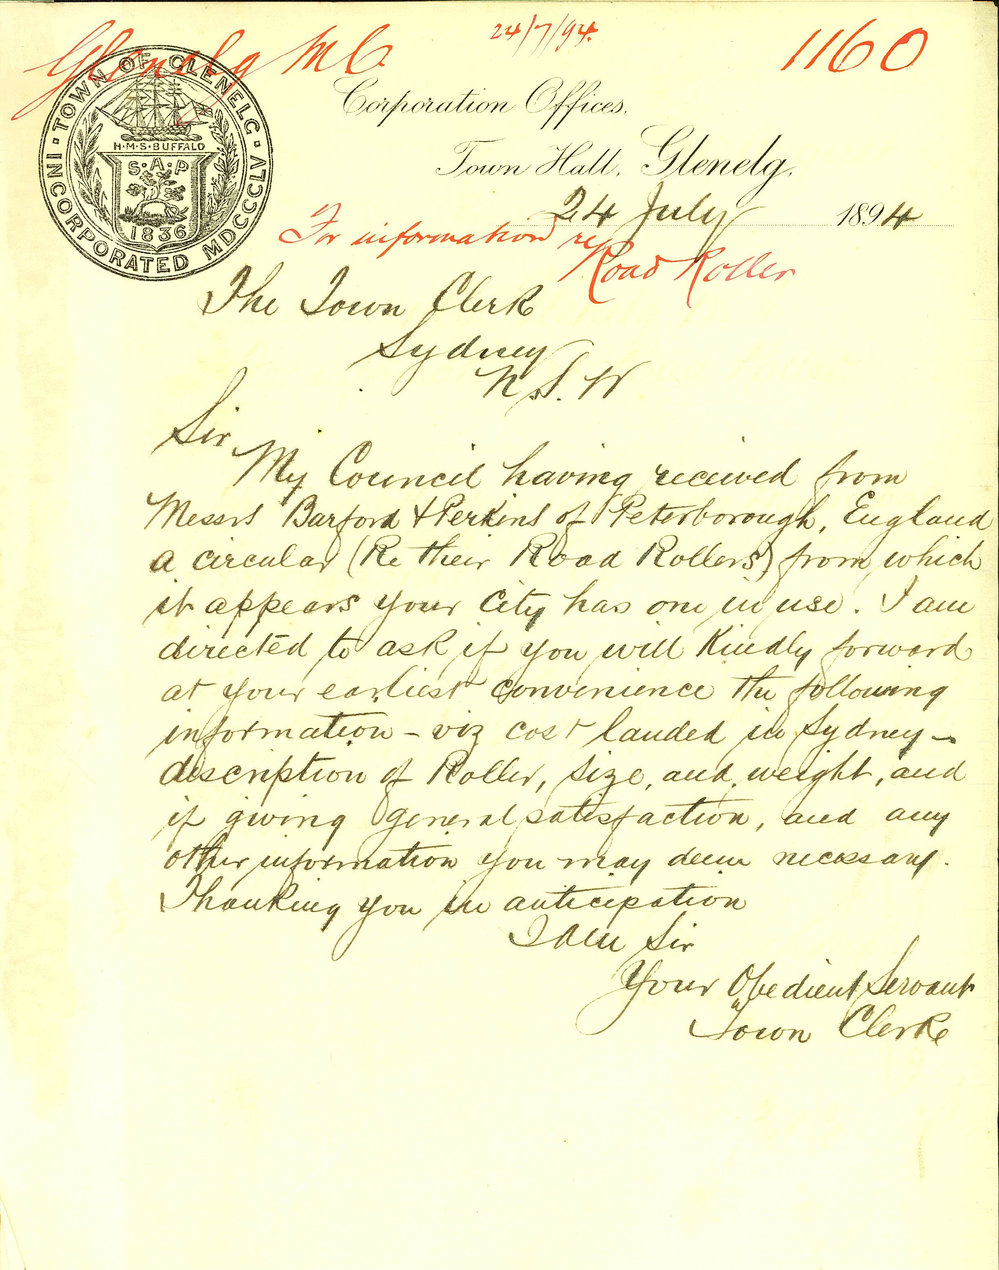 Glenelg M C
24/7/94.
1160
· TOWN OF GLENELG ·
INCORPORATED MDCCCLV
H·M·S·BUFFALO
S·A·P
1836
Corporation Offices.
Town Hall, Glenelg,
24 July 1894
For information re
Road Roller
The Town Clerk
Sydney
N.S.W
Sir
My Council having received from
Messrs Barford & Perkins of Peterborough, England
a circular (Re their Road Rollers) from which
it appears your City has one in use. I am
directed to ask if you will Kindly forward
at your earliest convenience the following
information - viz cost landed in Sydney -
description of Roller, size, and weight, and
if giving general satisfaction, and any
other information you may deem necessary.
Thanking you in anticipation
I am Sir
Your Obedient Servant
Town Clerk